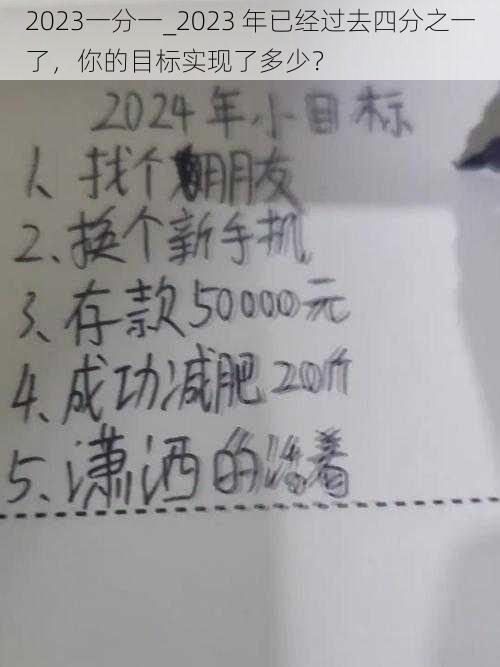 2023一分一_2023 年已经过去四分之一
了，你的目标实现了多少？
2024年小目标
1、找个朋友
2、换个新手机
3、存款50000元
4、成功减肥20斤
5、潇洒的活着